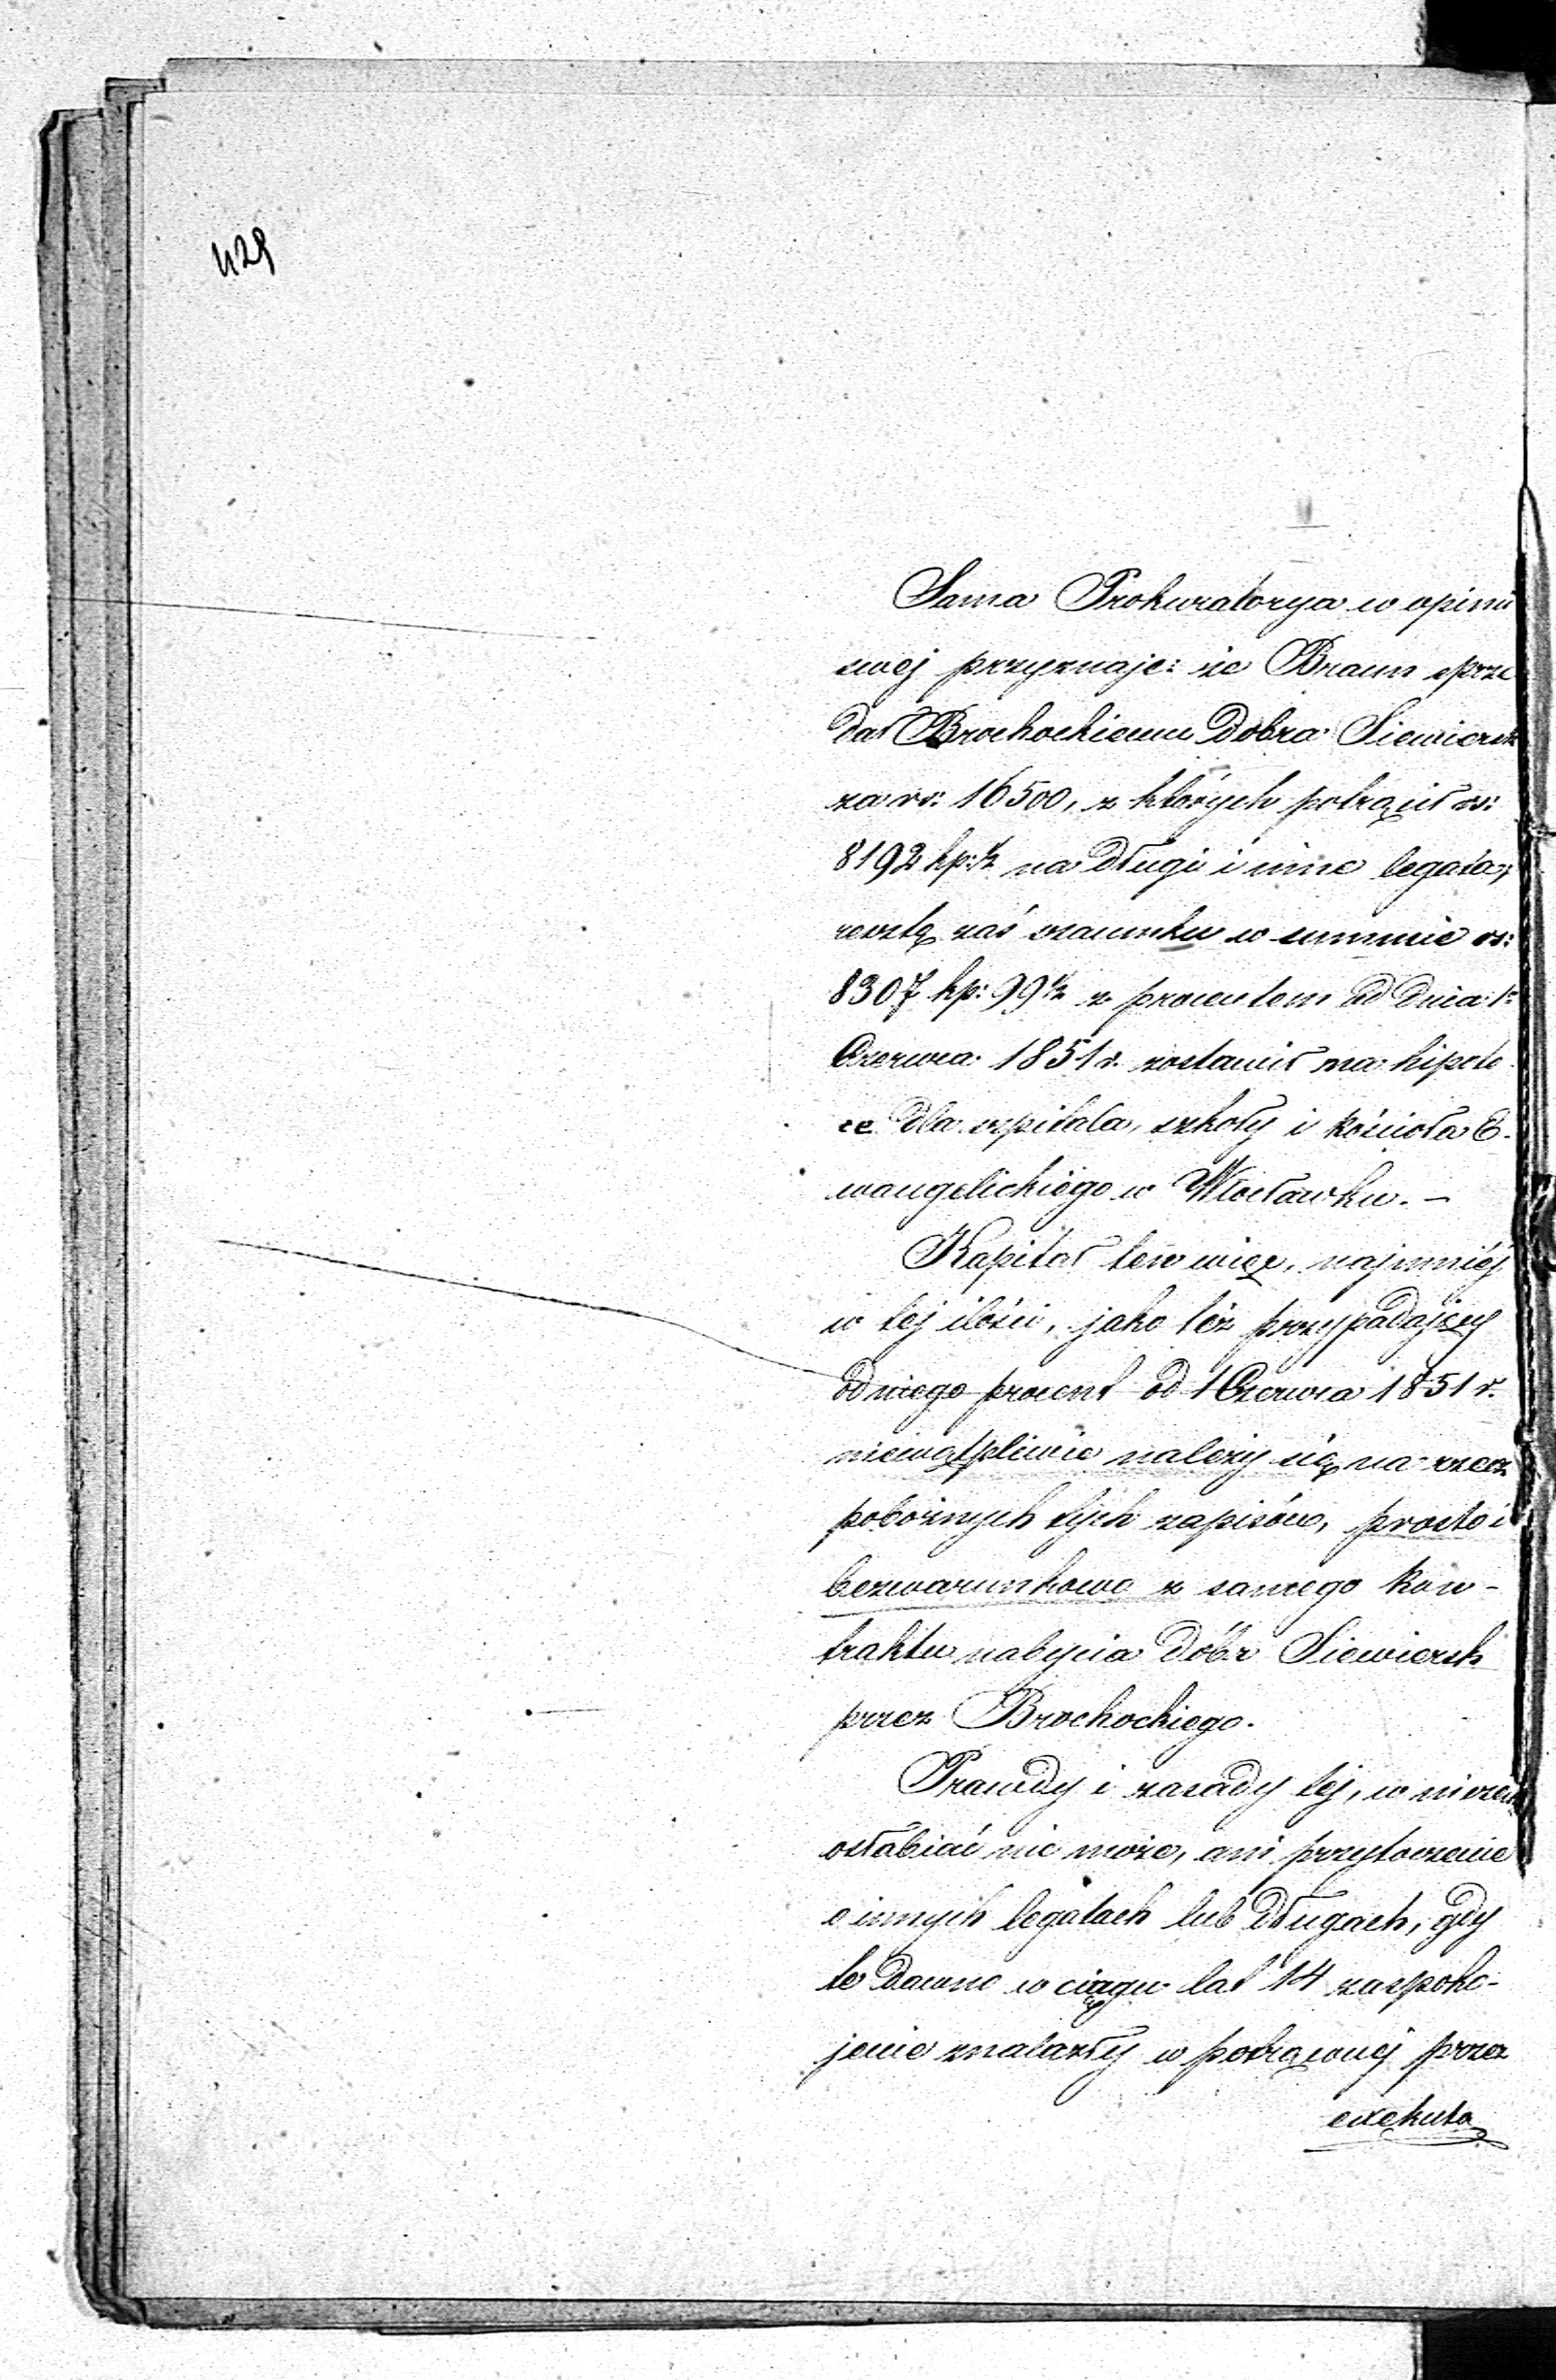 429
Sama Prokuratorya w opinii
swej przyznaje: że Braun sprze
dał Brochockiemu Dobra Siewiersk
za rs: 16500, z których potrącił rs:
8192 kp: ½ na długi i inne legata;
resztę zaś szacunku w summie rs:
8307 kp: 99½ z procentem od dnia 1º
Czerwca 1851 r. zostawił na hipote
ce dla szpitala, szkoły i kościoła E-
wangelickiego w Włocławku. –
Kapitał ten więc, najmniéj
w tej ilości, jako też przypadający
od niego procent od 1 Czerwca 1851 r.
niewątpliwie należy się na rzecz
pobożnych tych zapisów, prosto i
bezwarunkowo z samego kon-
traktu nabycia dóbr Siewiersk
przez Brochockiego.
Prawdy i zasady tej, w niczem
osłabiać nie może, ani przytoczenie
o innych legatach lub długach, gdy
te dawno w ciągu lat 14 zaspoko-
jenie znalazły w potrąconej przez
exekuto